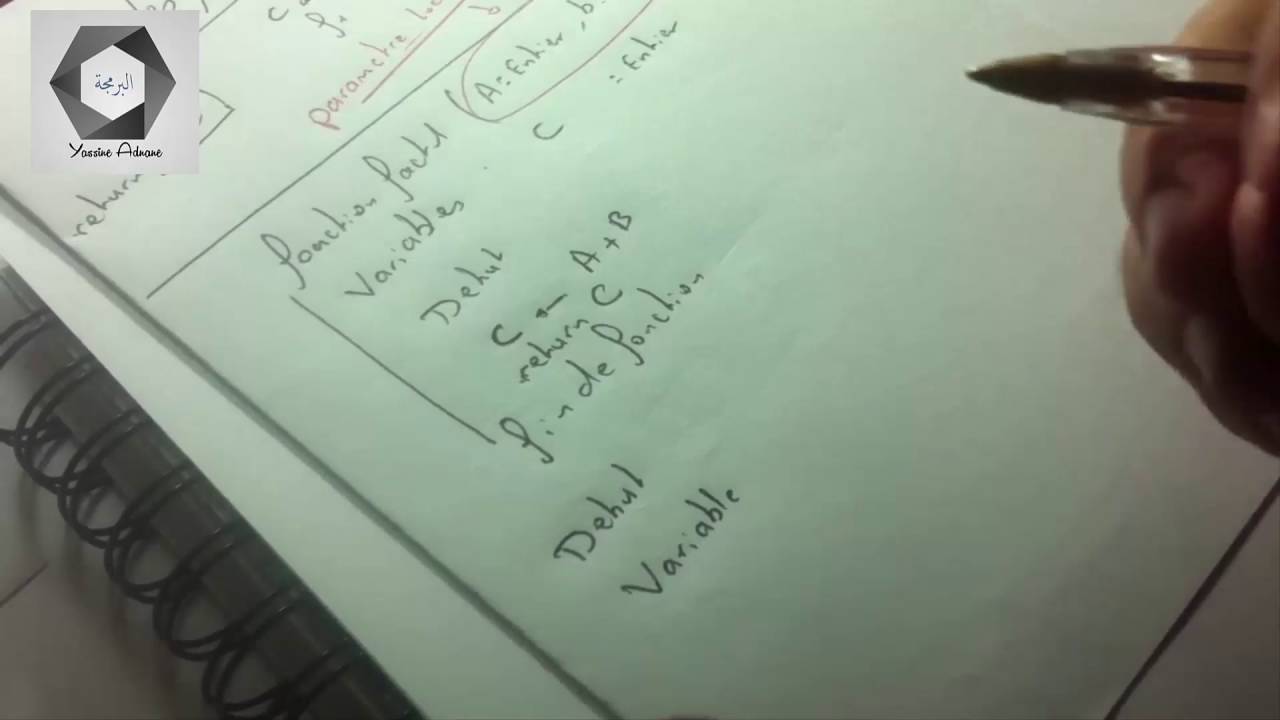 البرمجة
Yassine Adnane
return
parametre
fonction fact1 (A: Entier, b:
Variables C : Entier
Debut
C ← A + B
return C
fin de fonction
Debut
Variable